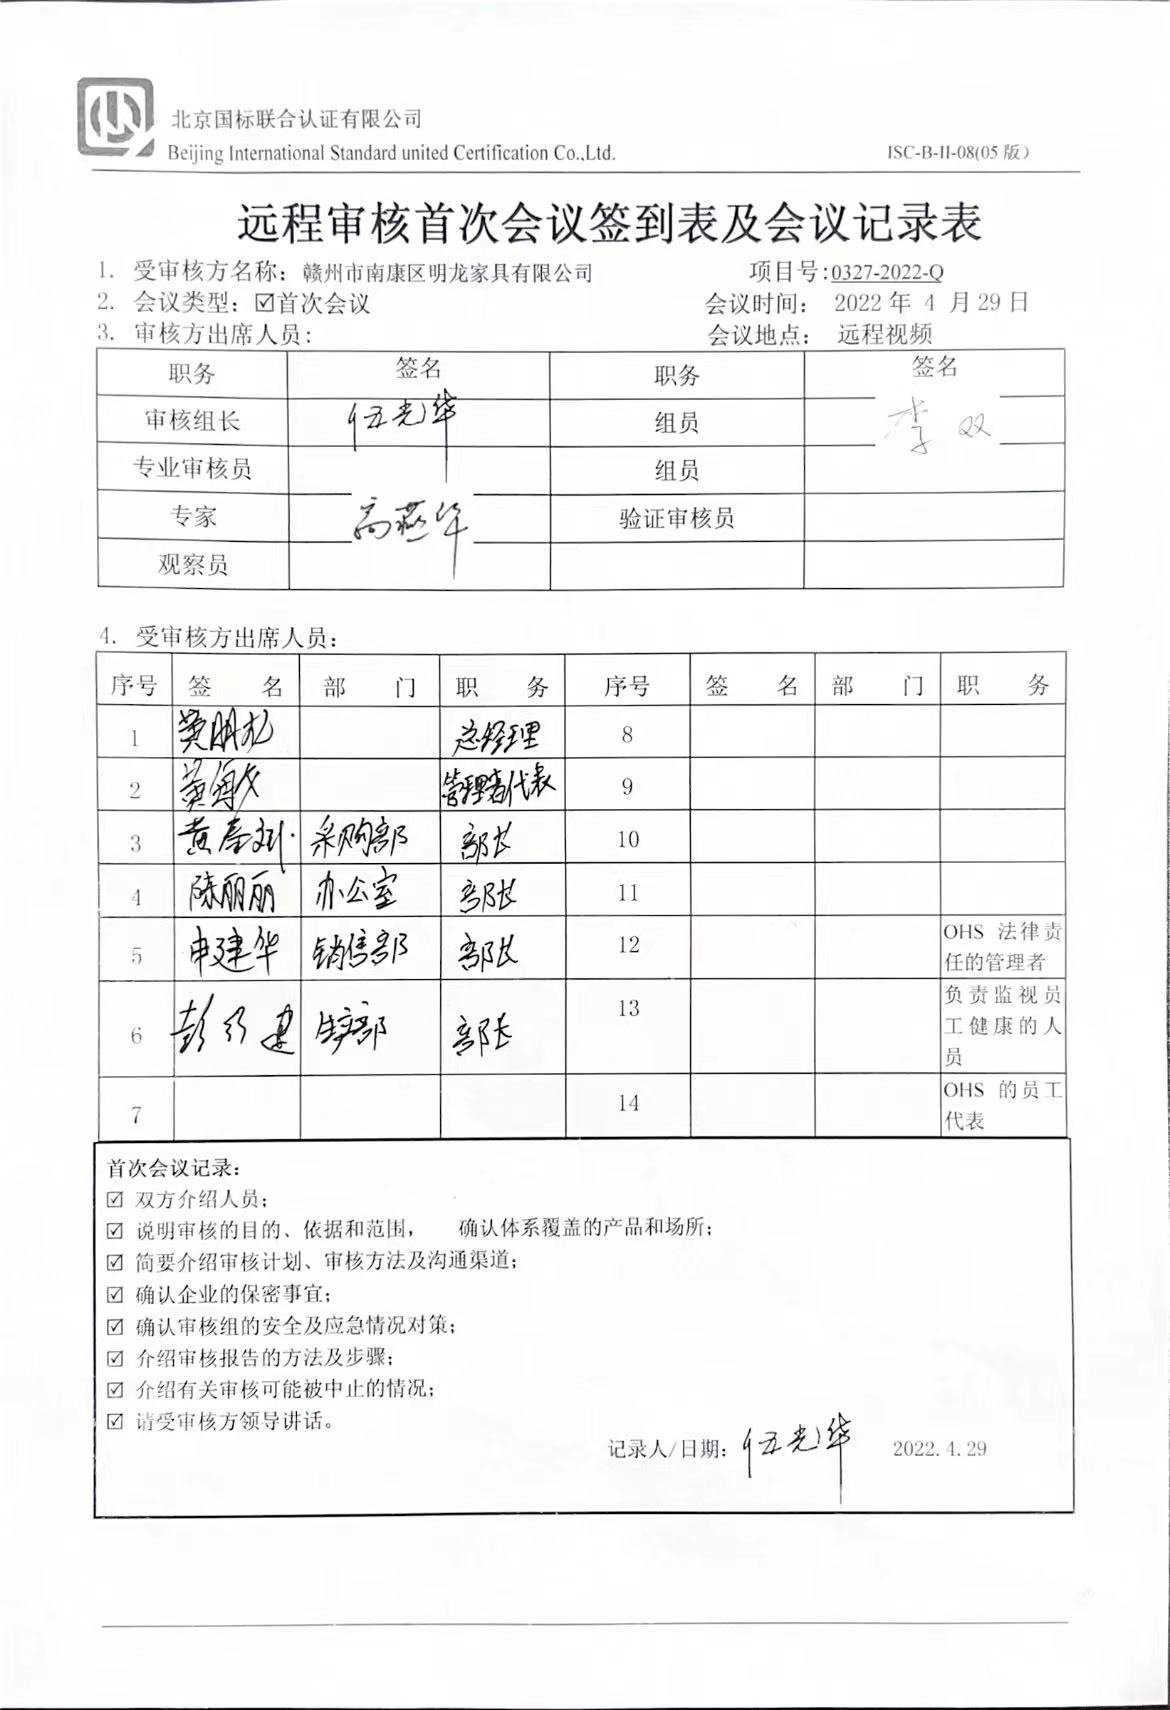 北京国标联合认证有限公司
Beijing International Standard united Certification Co.,Ltd. ISC-B-II-08(05版)
远程审核首次会议签到表及会议记录表
1. 受审核方名称：赣州市南康区明龙家具有限公司 项目号:0327-2022-Q
2. 会议类型：☑首次会议 会议时间： 2022年 4 月 29 日
3. 审核方出席人员： 会议地点： 远程视频
职务 签名 职务 签名
审核组长 伍光华 组员 李双
专业审核员 组员
专家 高燕华 验证审核员
观察员
4. 受审核方出席人员：
序号 签 名 部 门 职 务 序号 签 名 部 门 职 务
1 黄明 总经理 8
2 黄 管理者代表 9
3 黄 采购部 部长 10
4 陈丽丽 办公室 部长 11
5 申建华 销售部 部长 12 OHS 法律责
任的管理者
6 彭 建 生产部 部长 13 负责监视员
工健康的人
员
7 14 OHS 的员工
代表
首次会议记录：
☑ 双方介绍人员；
☑ 说明审核的目的、依据和范围， 确认体系覆盖的产品和场所；
☑ 简要介绍审核计划、审核方法及沟通渠道；
☑ 确认企业的保密事宜；
☑ 确认审核组的安全及应急情况对策；
☑ 介绍审核报告的方法及步骤；
☑ 介绍有关审核可能被中止的情况；
☑ 请受审核方领导讲话。
记录人/日期：伍光华 2022.4.29